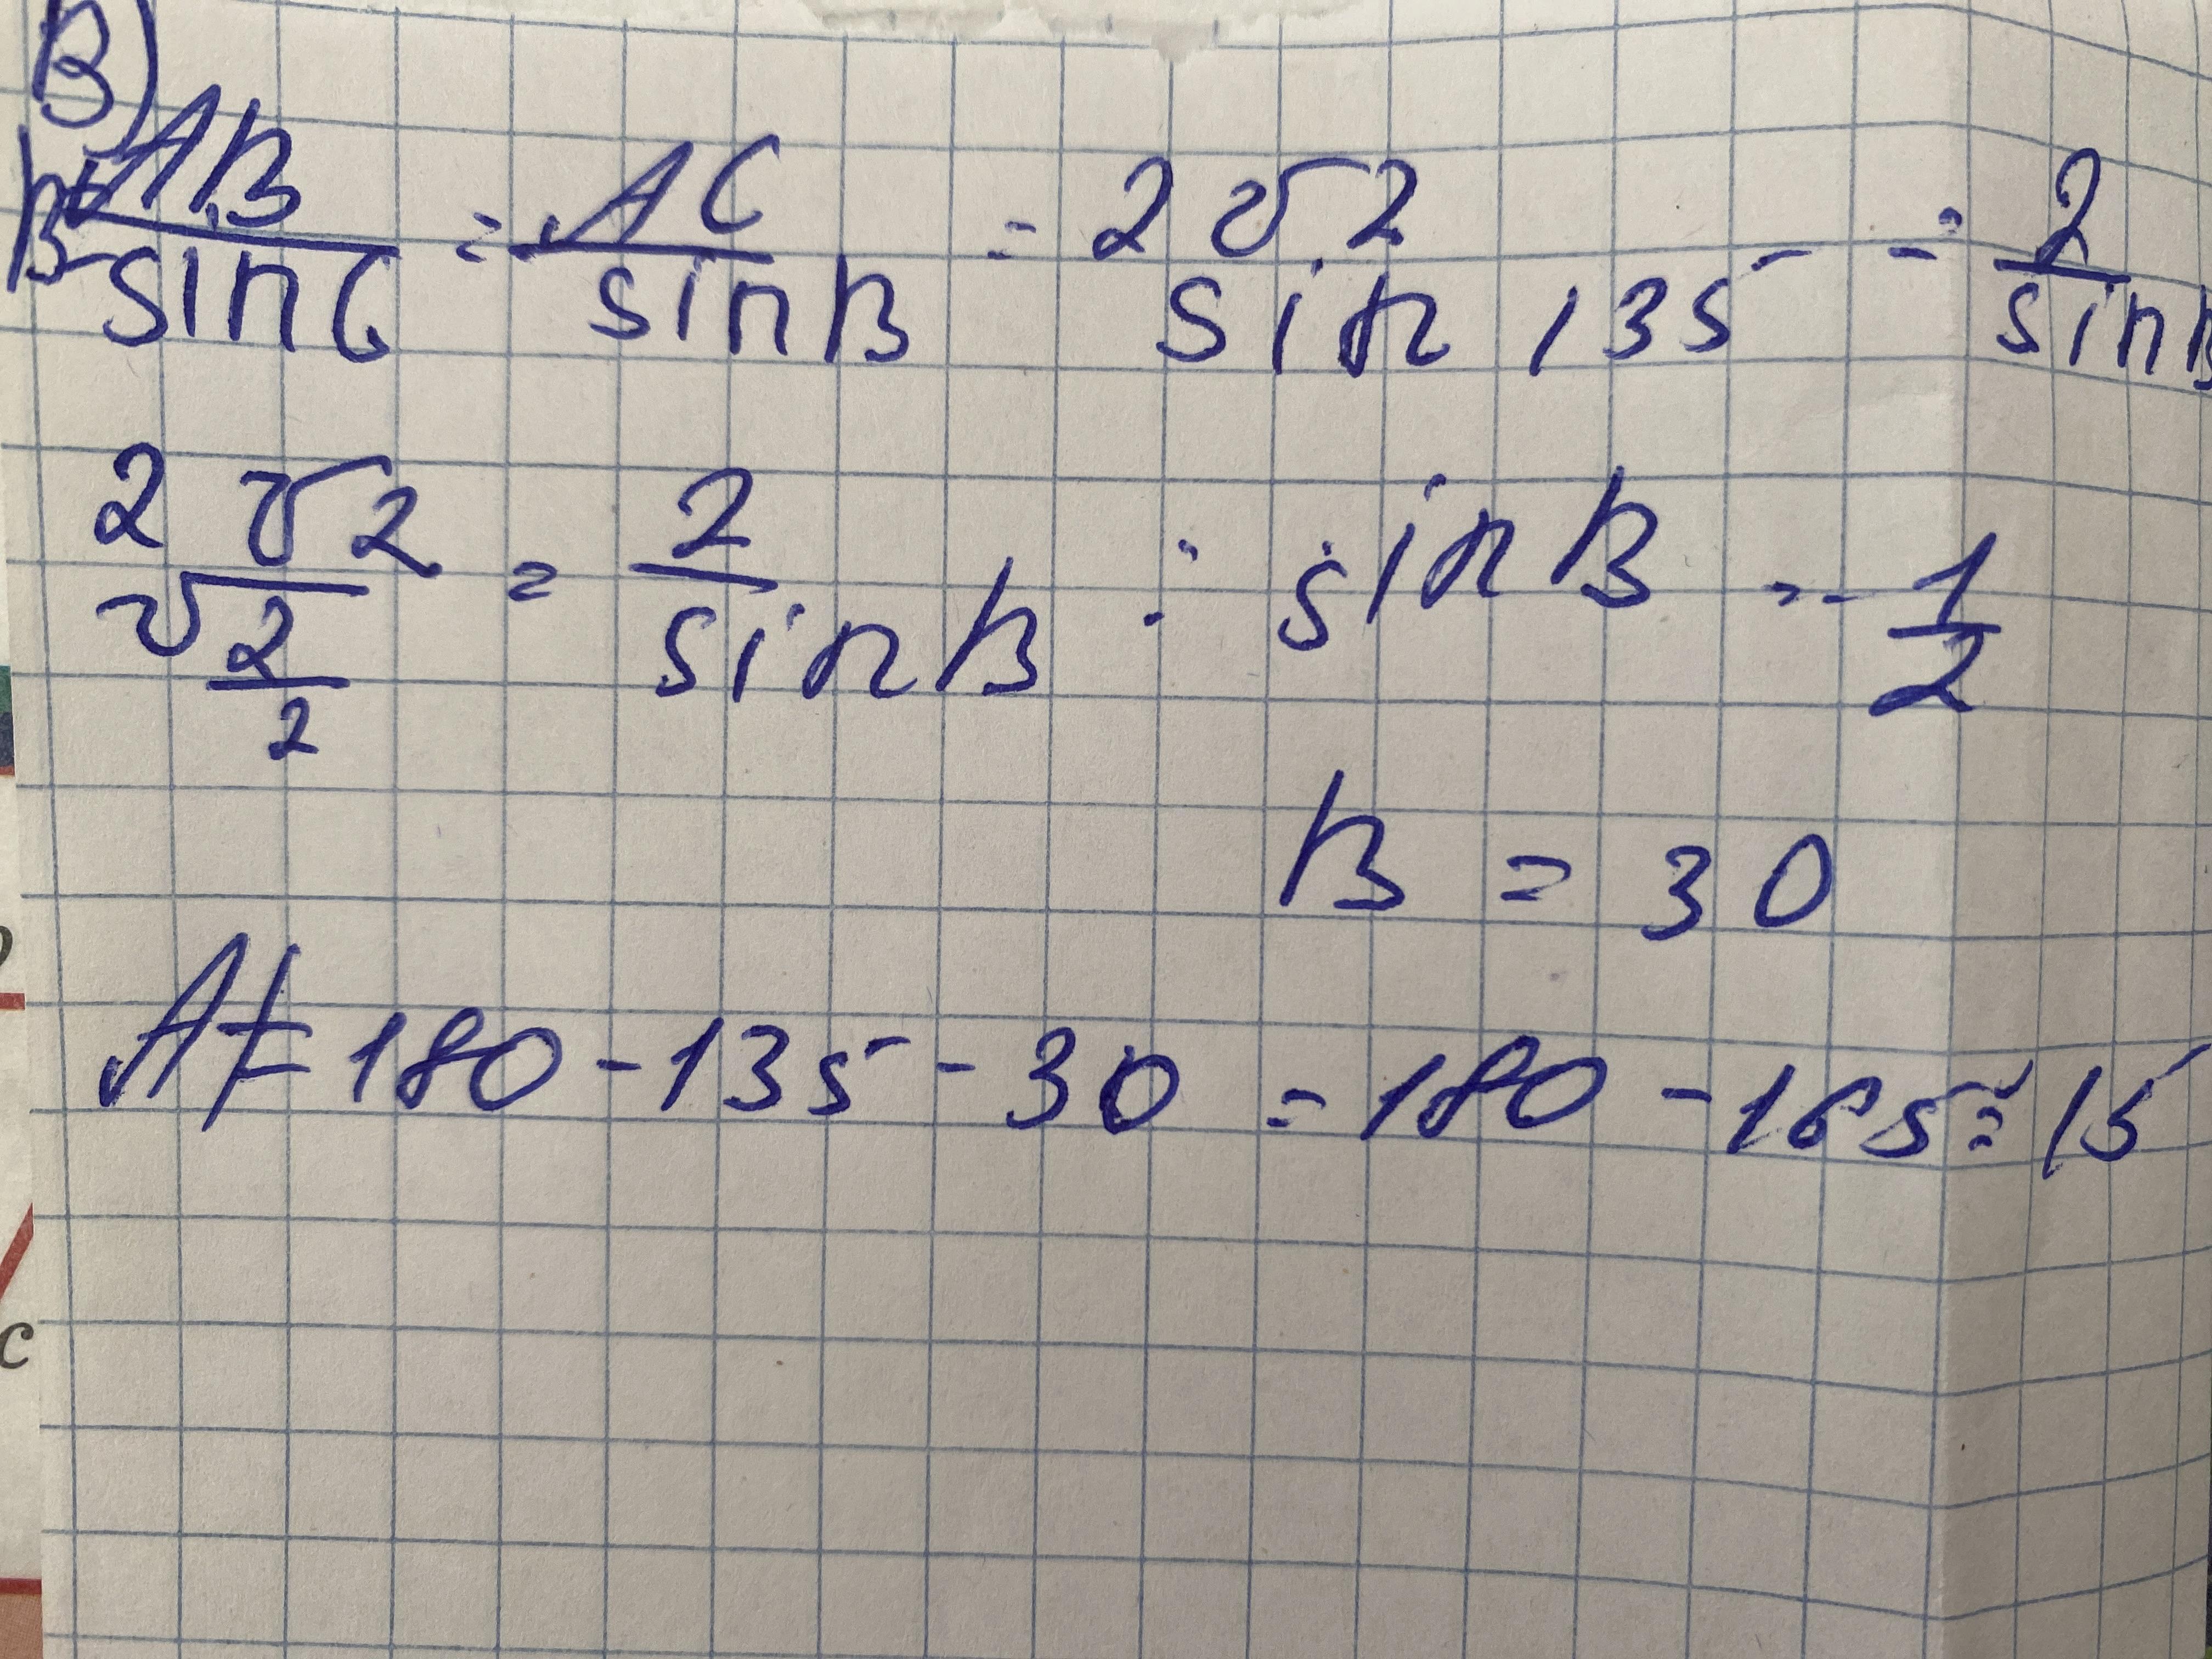 В)
AB/sin C = AC/sin B = 2√2/sin 135 = 2/sin B
2√2/(√2/2) = 2/sin B : sin B = 1/2
B = 30
A = 180 - 135 - 30 = 180 - 165 = 15
c